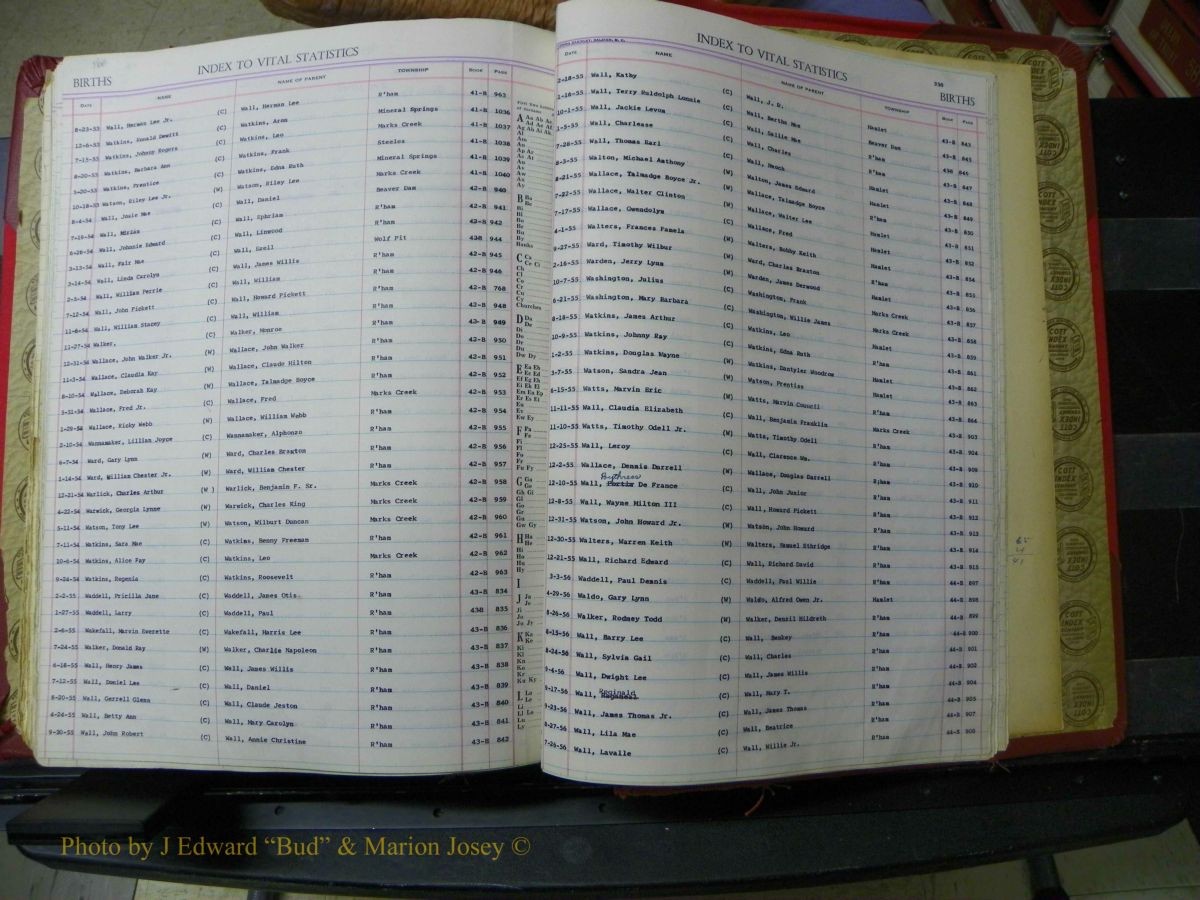 INDEX TO VITAL STATISTICS
BIRTHS
DATE NAME NAME OF PARENT TOWNSHIP BOOK PAGE
8-23-53 Wall, Herman Lee Jr. (C) Wall, Herman Lee R'ham 41-B 963
12-6-53 Watkins, Ronald Dewitt (C) Watkins, Aron Mineral Springs 41-B 1036
7-15-53 Watkins, Johnny Rogers (C) Watkins, Leo Marks Creek 41-B 1037
8-20-53 Watkins, Barbara Ann (C) Watkins, Frank Steeles 41-B 1038
5-20-53 Watkins, Prentice (C) Watkins, Edna Ruth Mineral Springs 41-B 1039
10-18-53 Watson, Riley Lee Jr. (W) Watson, Riley Lee Marks Creek 41-B 1040
8-4-54 Wall, Josie Mae (C) Wall, Daniel Beaver Dam 42-B 940
7-19-54 Wall, Miriam (C) Wall, Ephriam R'ham 42-B 941
6-26-54 Wall, Johnnie Edward (C) Wall, Linwood R'ham 42-B 942
3-13-54 Wall, Fair Mae (C) Wall, Ezell Wolf Pit 42B 944
2-14-54 Wall, Linda Carolyn (C) Wall, James Willis R'ham 42-B 945
2-3-54 Wall, William Perrie (C) Wall, William R'ham 42-B 946
7-12-54 Wall, John Pickett (C) Wall, Howard Pickett R'ham 42-B 768
11-8-54 Wall, William Stacey (C) Wall, William R'ham 42-B 948
11-27-54 Walker, Walker, Monroe R'ham 42-B 989
12-31-54 Wallace, John Walker Jr. (W) Wallace, John Walker R'ham 42-B 950
11-3-54 Wallace, Claudia Kay (W) Wallace, Claude Hilton R'ham 42-B 951
8-18-54 Wallace, Deborah Kay (W) Wallace, Talmadge Boyce R'ham 42-B 952
3-31-54 Wallace, Fred Jr. (C) Wallace, Fred Marks Creek 42-B 953
1-29-54 Wallace, Ricky Webb (W) Wallace, William Webb R'ham 42-B 954
2-10-54 Wannamaker, Lillian Joyce (C) Wannamaker, Alphonzo R'ham 42-B 955
6-7-54 Ward, Gary Lynn (W) Ward, Charles Braxton R'ham 42-B 956
1-14-54 Ward, William Chester Jr. (W) Ward, William Chester R'ham 42-B 957
12-21-54 Warlick, Charles Arthur (W) Warlick, Benjamin F. Sr. Marks Creek 42-B 958
4-22-54 Warwick, Georgia Lynne (W) Warwick, Charles King Marks Creek 42-B 959
5-11-54 Watson, Tony Lee (W) Watson, Wilburt Duncan Marks Creek 42-B 960
7-11-54 Watkins, Sara Mae (C) Watkins, Benny Freeman R'ham 42-B 961
10-6-54 Watkins, Alice Fay (C) Watkins, Leo Marks Creek 42-B 962
9-24-54 Watkins, Regenia (C) Watkins, Roosevelt R'ham 42-B 963
2-2-55 Waddell, Pricilla Jane (C) Waddell, James Otis R'ham 43-B 834
1-27-55 Waddell, Larry (C) Waddell, Paul R'ham 43B 835
2-6-55 Wakefall, Marvin Everette (C) Wakefall, Harris Lee R'ham 43-B 836
7-24-55 Walker, Donald Ray (W) Walker, Charlie Napoleon R'ham 43-B 837
6-18-55 Wall, Henry James (C) Wall, James Willis R'ham 43-B 838
7-12-55 Wall, Daniel Lee (C) Wall, Daniel R'ham 43-B 839
8-20-55 Wall, Gerrell Glenn (C) Wall, Claude Jeston R'ham 43-B 840
4-24-55 Wall, Betty Ann (C) Wall, Mary Carolyn R'ham 43-B 841
9-30-55 Wall, John Robert (C) Wall, Annie Christine R'ham 43-B 842
INDEX TO VITAL STATISTICS
BIRTHS
DATE NAME NAME OF PARENT TOWNSHIP BOOK PAGE
2-18-55 Wall, Kathy (C) Wall, J. D. Hamlet 43-B 843
1-16-55 Wall, Terry Ruldolph Lonnie (C) Wall, Bertha Mae Beaver Dam 43-B 845
10-1-55 Wall, Jackie Levon (C) Wall, Sallie Mae R'ham
1-5-55 Wall, Charlease (C) Wall, Charles R'ham 43-B 847
7-28-55 Wall, Thomas Earl (C) Wall, Enoch Hamlet 43-B 848
8-3-55 Walton, Michael Anthony (C) Walton, James Edward Hamlet 43-B 849
8-21-55 Wallace, Talmadge Boyce Jr. (W) Wallace, Talmadge Boyce R'ham 43-B 850
7-22-55 Wallace, Walter Clinton (W) Wallace, Walter Lee Hamlet 43-B 851
7-17-55 Wallace, Gwendolyn (C) Wallace, Fred Hamlet 43-B 852
4-1-55 Walters, Frances Pamela (W) Walters, Bobby Keith Hamlet 43-B 854
9-27-55 Ward, Timothy Wilbur (W) Ward, Charles Braxton 43-B 855
2-16-55 Warden, Jerry Lynn (W) Warden, James Derwood 43-B 856
10-7-55 Washington, Julius (C) Washington, Frank 43-B 857
6-21-55 Washington, Mary Barbara (C) Washington, Willie James Marks Creek 43-B 858
8-18-55 Watkins, James Arthur (C) Watkins, Leo Marks Creek 43-B 859
10-9-55 Watkins, Johnny Ray (C) Watkins, Edna Ruth Hamlet 43-B 861
1-2-55 Watkins, Douglas Wayne (W) Watkins, Dantyler Woodrow R'ham 43-B 862
3-7-55 Watson, Sandra Jean (C) Watson, Prentiss Hamlet 43-B 863
6-15-55 Watts, Marvin Eric (W) Watts, Marvin Council R'ham 43-B 864
11-11-55 Wall, Claudia Elizabeth (C) Wall, Benjamin Franklin Marks Creek 43-B 903
11-10-55 Watts, Timothy Odell Jr. (W) Watts, Timothy Odell R'ham 43-B 904
12-25-55 Wall, Leroy (C) Wall, Clarence Wm. R'ham 43-B 909
12-2-55 Wallace, Dennis Darrell (W) Wallace, Douglas Darrell R'ham 43-B 910
12-10-55 Wall, De France (C) Wall, John Junior R'ham 43-B 911
12-8-55 Wall, Wayne Milton III (C) Wall, Howard Pickett R'ham 43-B 912
12-31-55 Watson, John Howard Jr. (W) Watson, John Howard R'ham 43-B 913
12-30-55 Walters, Warren Keith (W) Walters, Samuel Ethridge R'ham 43-B 914
12-21-55 Wall, Richard Edward (C) Wall, Richard David R'ham 43-B 915
3-3-56 Waddell, Paul Dennis (C) Waddell, Paul Willie R'ham 44-B 897
4-29-56 Waldo, Gary Lynn (W) Waldo, Alfred Owen Jr. Hamlet 44-B 898
8-26-56 Walker, Rodney Todd (W) Walker, Denzil Hildreth R'ham 44-B 899
8-15-56 Wall, Barry Lee (C) Wall, Benkey R'ham 44-B 900
8-24-56 Wall, Sylvia Gail (C) Wall, Charles R'ham 44-B 901
9-4-56 Wall, Dwight Lee (C) Wall, James Willis R'ham 44-B 902
9-17-56 Wall, Reginald (C) Wall, Mary T. R'ham 44-B 904
9-23-56 Wall, James Thomas Jr. (C) Wall, James Thomas R'ham 44-B 905
8-27-56 Wall, Lila Mae (C) Wall, Beatrice R'ham 44-B 907
7-26-56 Wall, Lavalle (C) Wall, Willie Jr. R'ham 44-B 908
Photo by J Edward “Bud” & Marion Josey ©